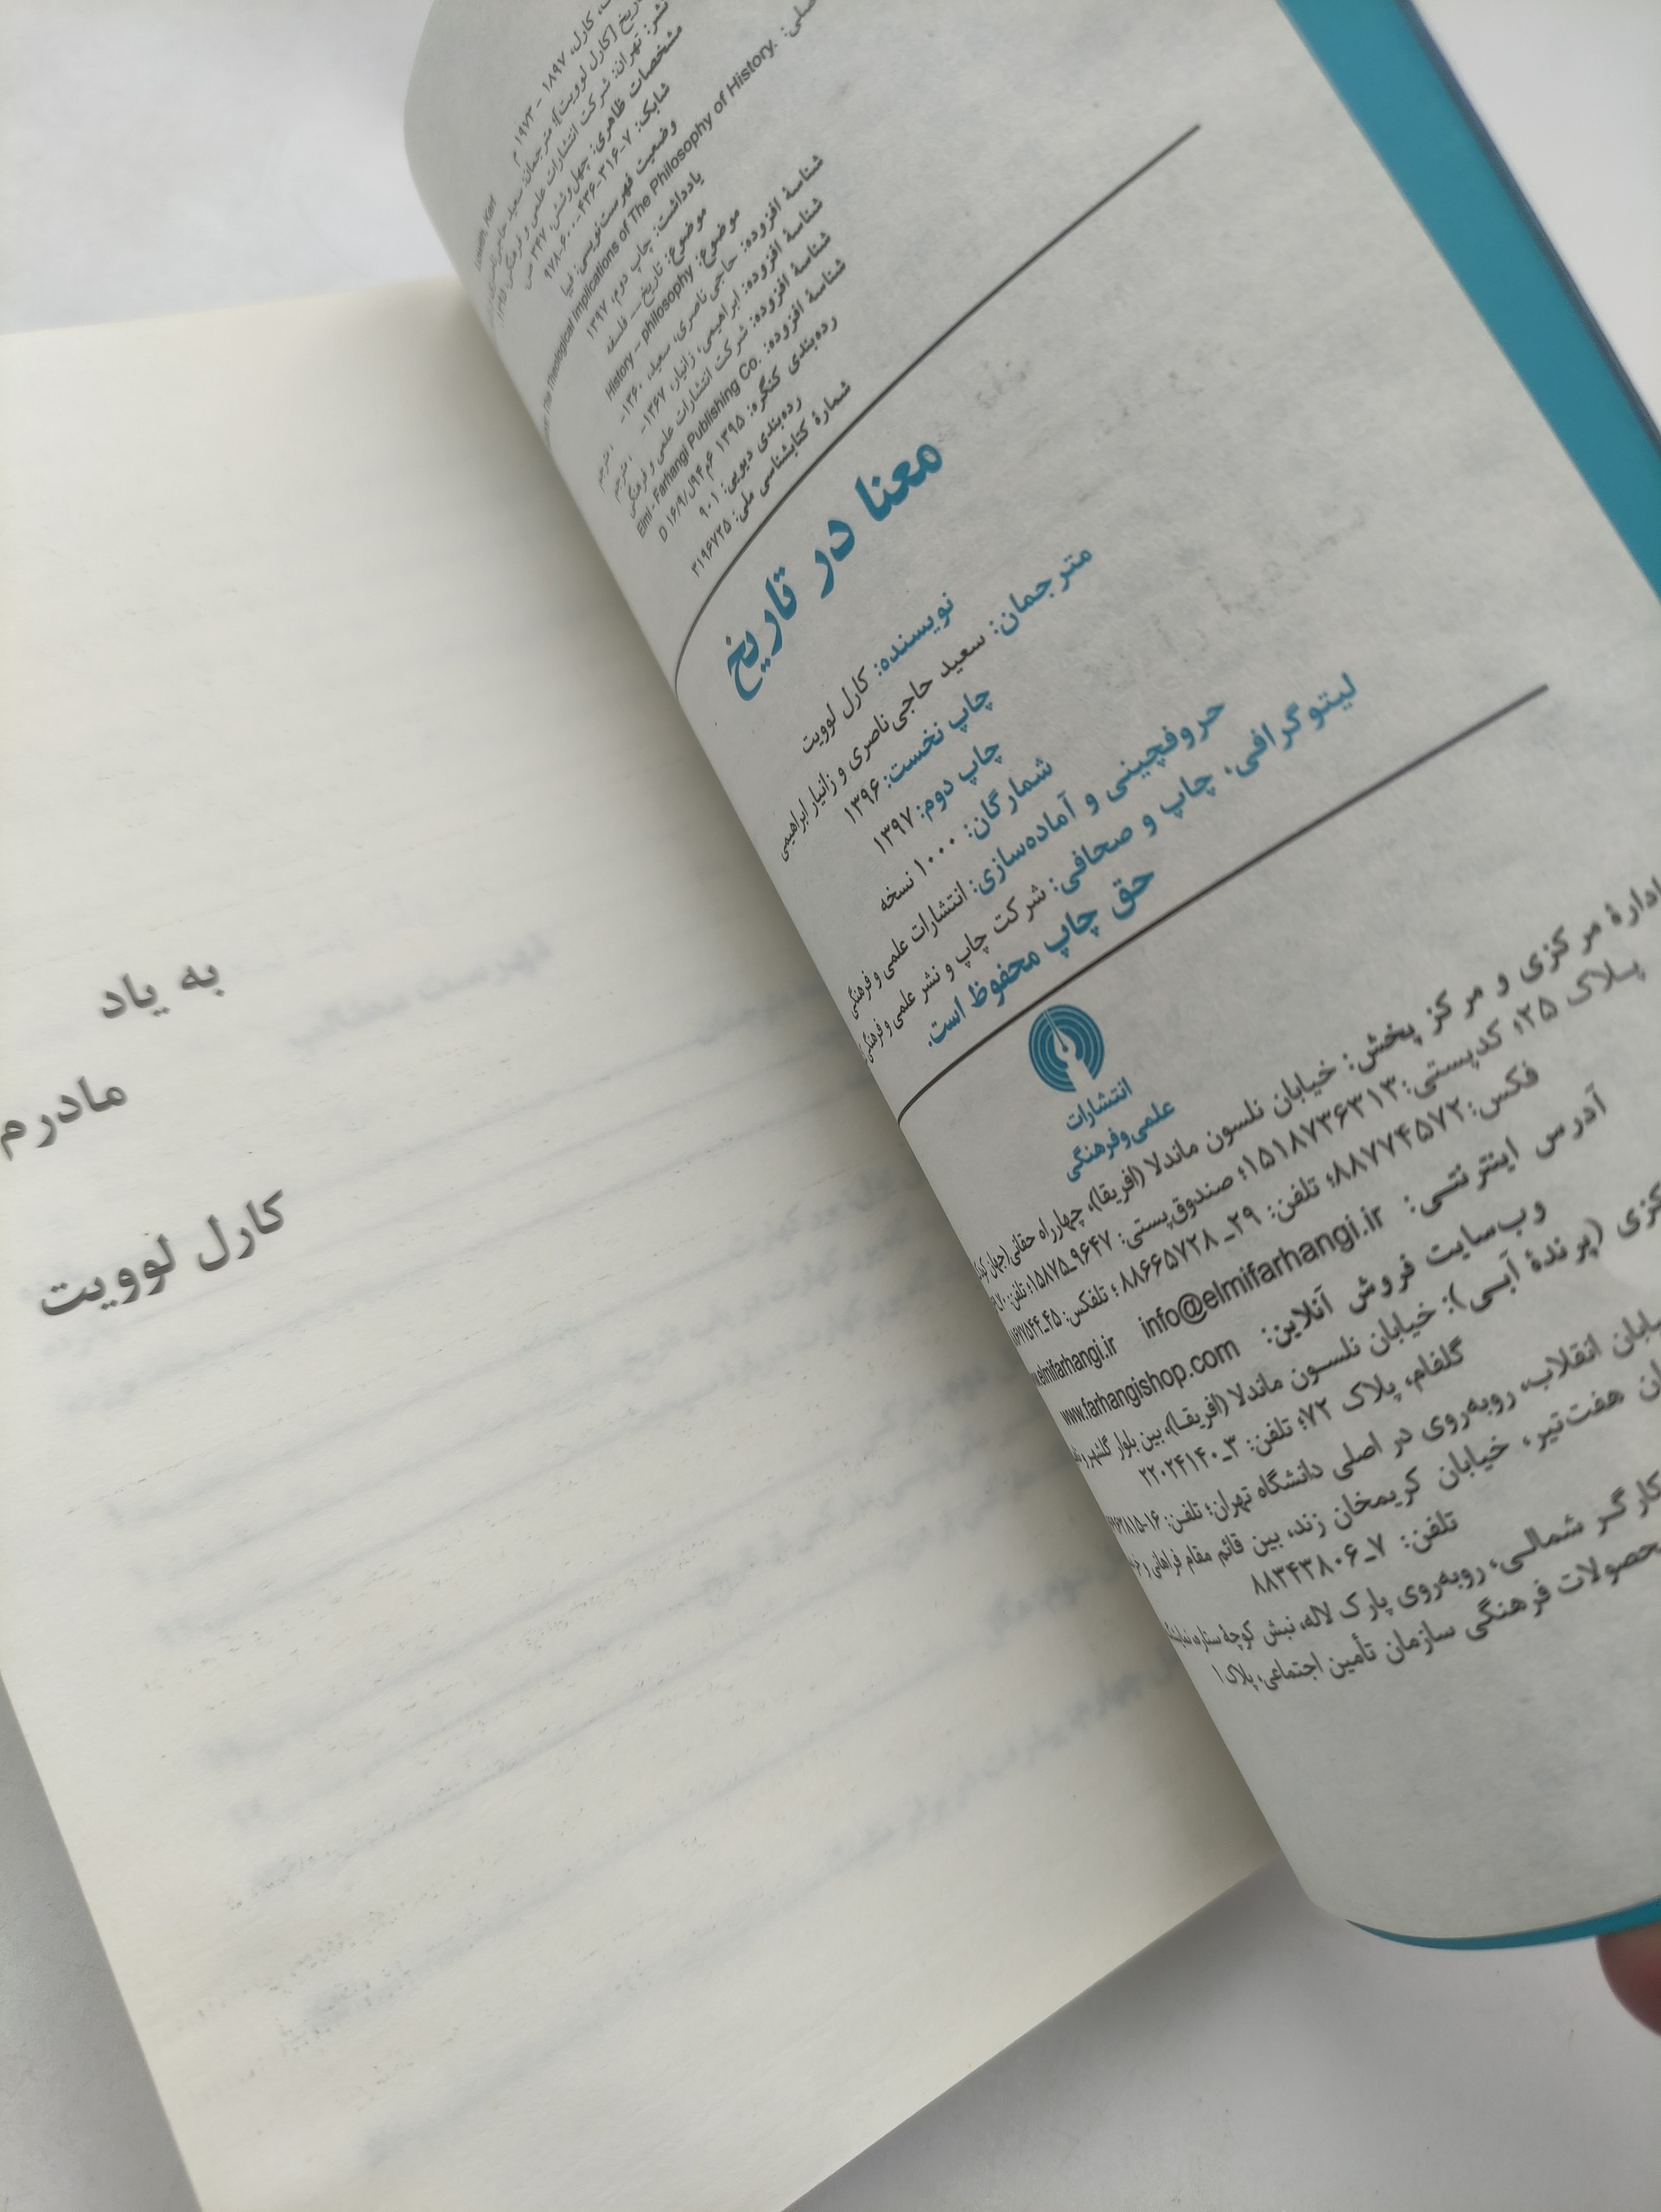 کارل، ۱۸۹۷ - ۱۹۷۳ م
Lowith, Karl
تاریخ [کارل لوویت]؛ مترجمان: سعید حاجی
نشر: تهران: شرکت انتشارات علمی و فرهنگی، ۱۳۹۵
مشخصات ظاهری: چهل‌وشش، ۳۴۷ ص
شابک: ۷-۳۱۶-۴۳۶-۶۰۰-۹۷۸
وضعیت فهرست‌نویسی: فیپا
The Theological Implications of The Philosophy of History.
یادداشت: چاپ دوم، ۱۳۹۷
موضوع: تاریخ — فلسفه
موضوع: History – philosophy
شناسهٔ افزوده: حاجی ناصری، سعید، ۱۳۶۰-، مترجم
شناسهٔ افزوده: ابراهیمی، زانیار، ۱۳۶۷-، مترجم
شناسهٔ افزوده: شرکت انتشارات علمی و فرهنگی
شناسهٔ افزوده: Elmi - Farhangi Publishing Co.
رده‌بندی کنگره: ۱۳۹۵ ۶م۹۴ل/۱۶/۹ D
رده‌بندی دیویی: ۹۰۱
شمارهٔ کتابشناسی ملی: ۳۱۹۶۷۲۵
معنا در تاریخ
نویسنده: کارل لوویت
مترجمان: سعید حاجی‌ناصری و زانیار ابراهیمی
چاپ نخست: ۱۳۹۶
چاپ دوم: ۱۳۹۷
شمارگان: ۱۰۰۰ نسخه
حروفچینی و آماده‌سازی: انتشارات علمی و فرهنگی
لیتوگرافی، چاپ و صحافی: شرکت چاپ و نشر علمی و فرهنگی
حق چاپ محفوظ است.
انتشارات
علمی‌وفرهنگی
ادارهٔ مرکزی و مرکز پخش: خیابان نلسون ماندلا (افریقا)، چهارراه حقانی (جهان
پلاک ۲۵؛ کدپستی: ۱۵۱۸۷۳۶۳۱۳؛ صندوق‌پستی: ۹۶۴۷-۱۵۸۷۵؛ تلفن:
فکس: ۸۸۷۷۴۵۷۲؛ تلفن: ۲۹-۸۸۶۶۵۷۲۸؛ تلفکس: ۴۵-
آدرس اینترنتی: info@elmifarhangi.ir elmifarhangi.ir
وب‌سایت فروش آنلاین: www.farhangishop.com
(پرندهٔ آبی): خیابان نلسون ماندلا (افریقا)، بین بلوار گلشهر و
گلفام، پلاک ۷۲؛ تلفن: ۳-۲۲۰۲۴۱۴۰
انقلاب، روبه‌روی در اصلی دانشگاه تهران؛ تلفن: ۱۶-
هفت‌تیر، خیابان کریمخان زند، بین قائم مقام فراهانی و
تلفن: ۷-۸۸۳۴۳۸۰۶
کارگر شمالی، روبه‌روی پارک لاله، نبش کوچهٔ ستاره،
محصولات فرهنگی سازمان تأمین اجتماعی، پلاک ۱
به یاد
مادرم
کارل لوویت